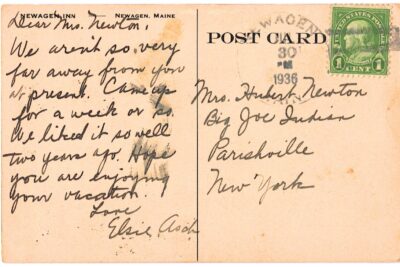 NEWAGEN INN NEWAGEN, MAINE
Dear Mrs. Newton:
We aren't so very
far away from you
at present. Came up
for a week or so.
We liked it so well
two years ago. Hope
you are enjoying
your vacation.
Love
Elsie Asch
POST CARD
WAGEN
30
PM
1936
1 CENT 1
Mrs. Hubert Newton
Big Joe Indian
Parishville
New York